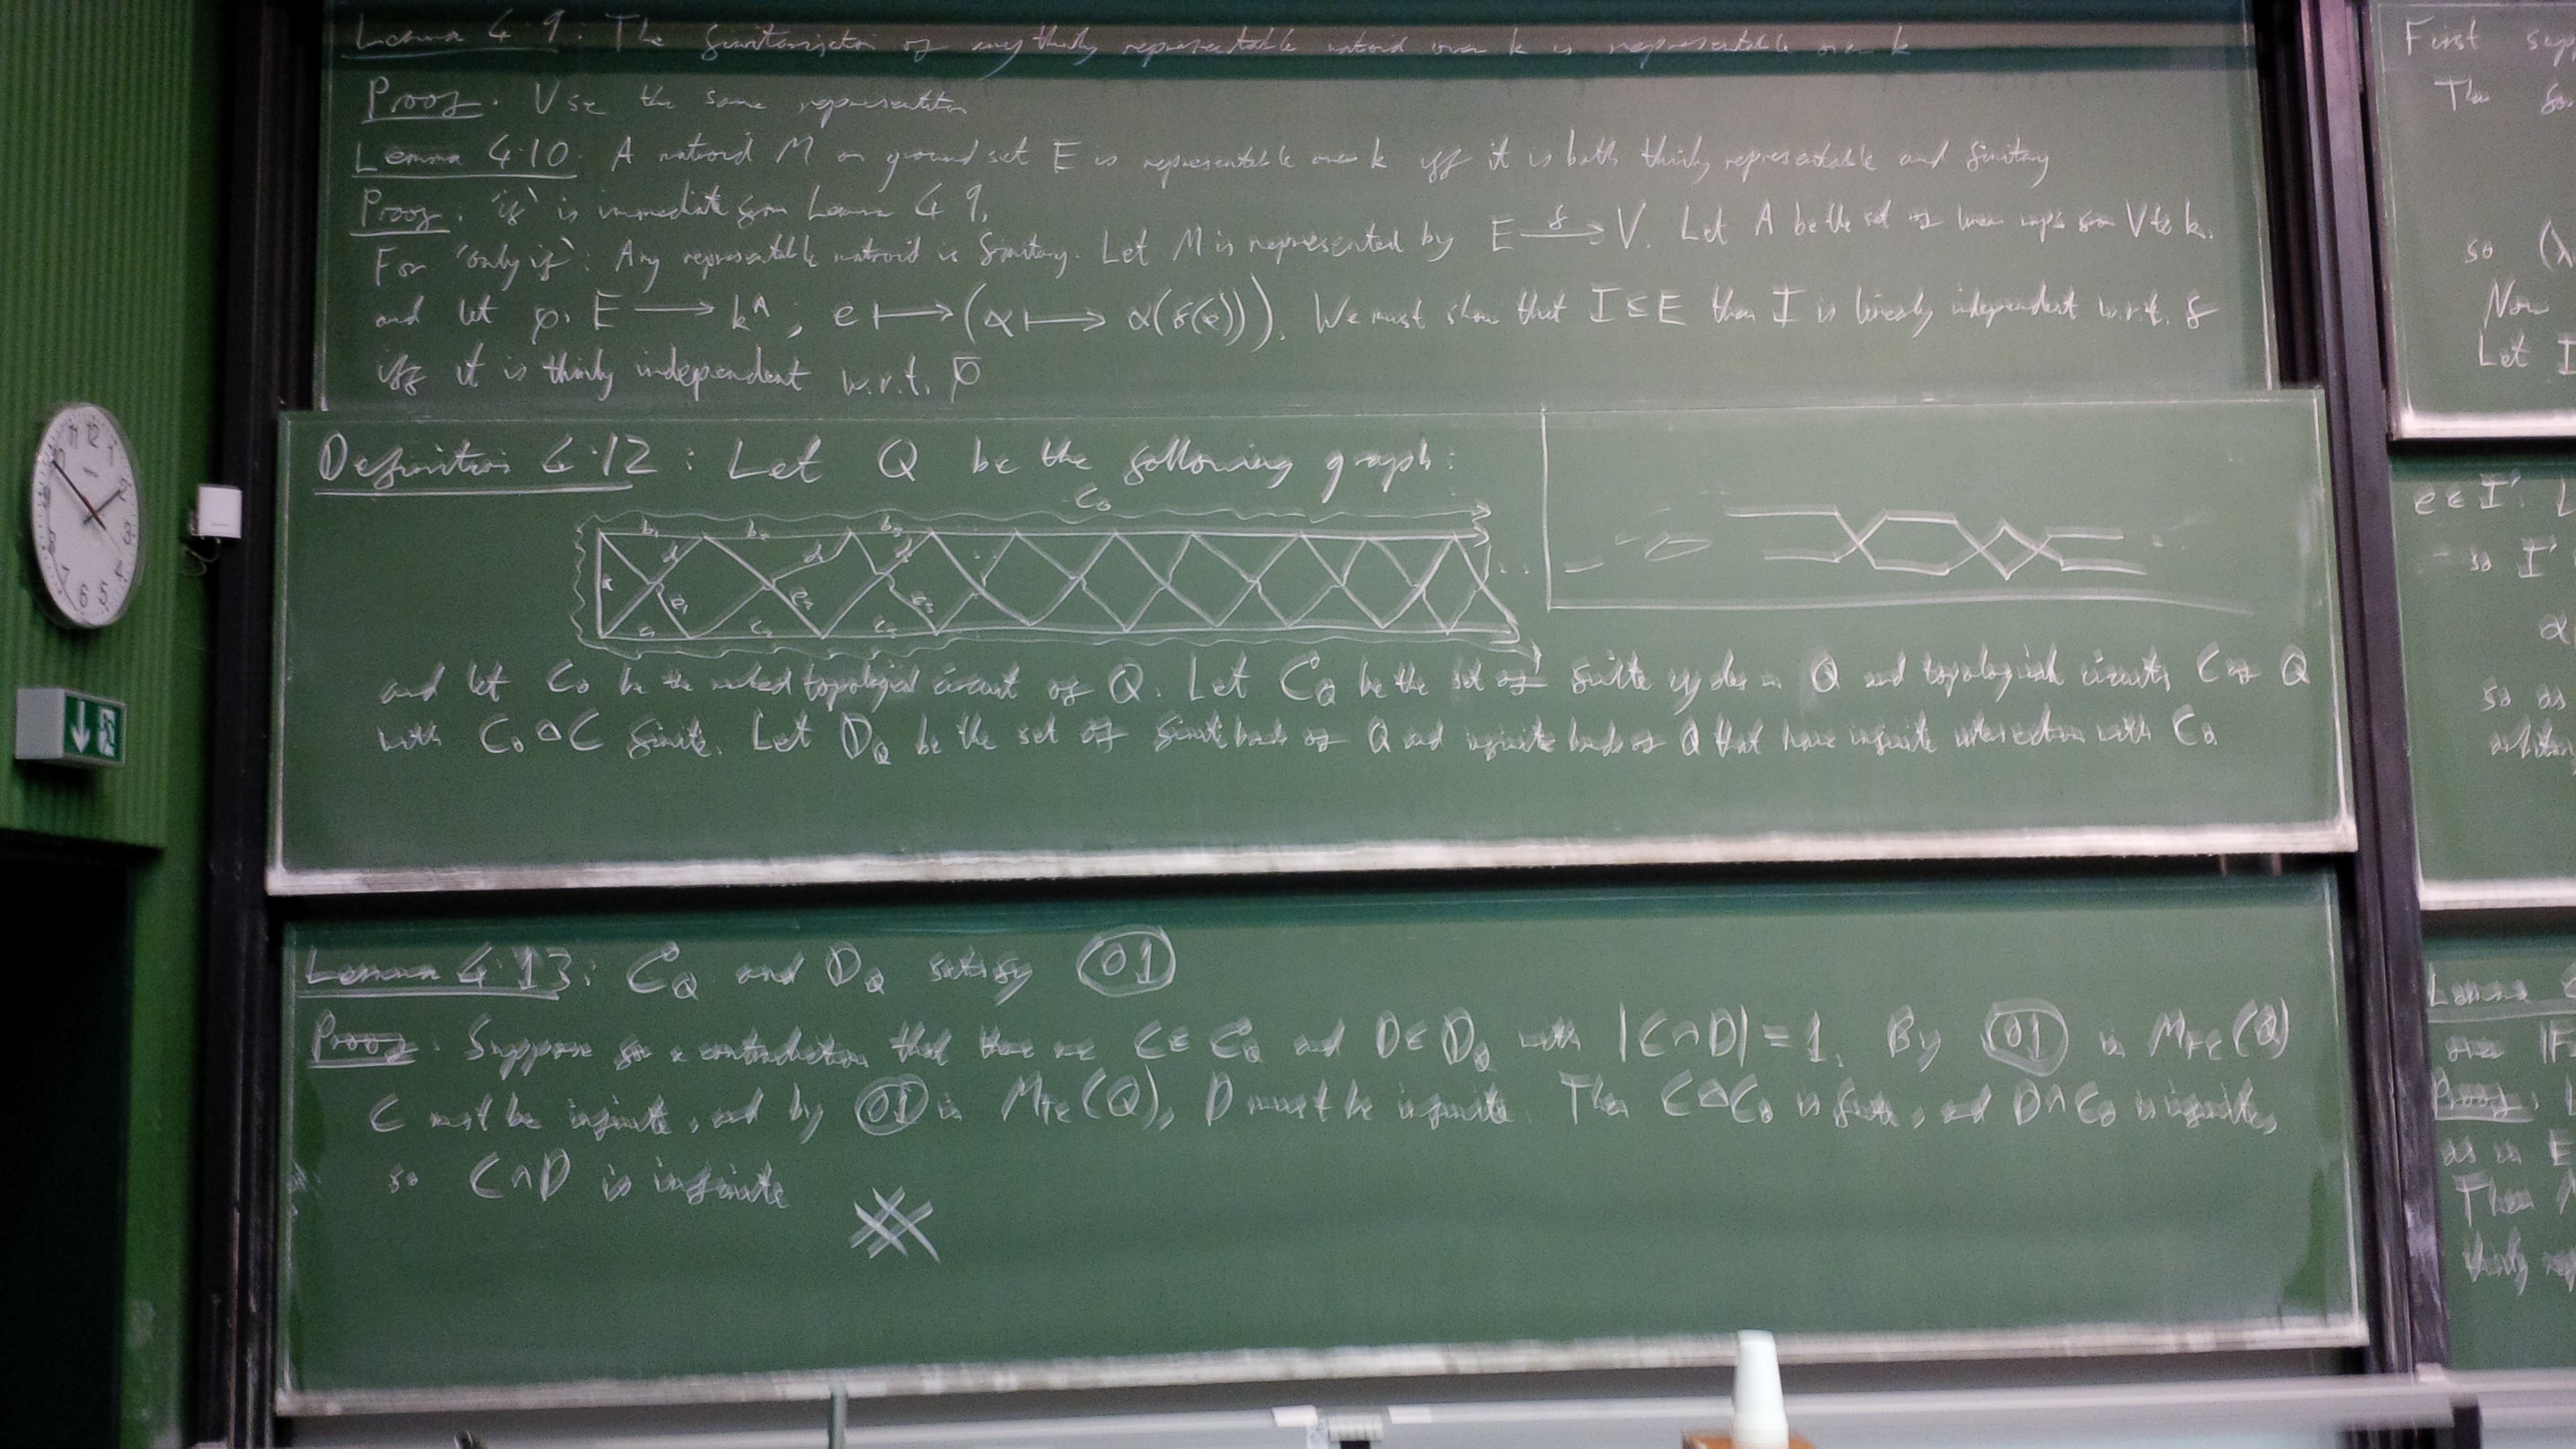 Lemma 4.9: The finitarisation of any thinly representable matroid over k is representable over k
Proof: Use the same representation
Lemma 4.10: A matroid M on ground set E is representable over k iff it is both thinly representable and finitary
Proof: 'if' is immediate from Lemma 4.9.
For 'only if': Any representable matroid is finitary. Let M is represented by E —f→ V. Let A be the set of linear maps from V to k.
and let φ: E ⟶ k^A, e ⟼ (α ⟼ α(f(e))). We must show that I ⊆ E then I is linearly independent w.r.t. f
iff it is thinly independent w.r.t. φ
Definition 4.12: Let Q be the following graph:
C₀
b₁ b₂ b₃
d₁ d₂ d₃
e₁ e₂ e₃
c₁ c₂ c₃
...
and let C₀ be the marked topological circuit of Q. Let C_Q be the set of finite cycles in Q and topological circuits C of Q
with C₀ △ C finite. Let D_Q be the set of finite bonds of Q and infinite bonds of Q that have infinite intersection with C₀
Lemma 4.13: C_Q and D_Q satisfy (O1)
Proof: Suppose for a contradiction that there are C ∈ C_Q and D ∈ D_Q with |C∩D| = 1. By (O1) in M_FC(Q)
C must be infinite, and by (O1) in M_TC(Q), D must be infinite. Then C△C₀ is finite, and D∩C₀ is infinite,
so C∩D is infinite
First
The
so (λ
Now
Let I
e ∈ I'. L
so I'
α
so as
Lemma
over |F
Proof:
as in E
Then λ
thinly
11 12 1
2
3
4
5
6
7
8
9